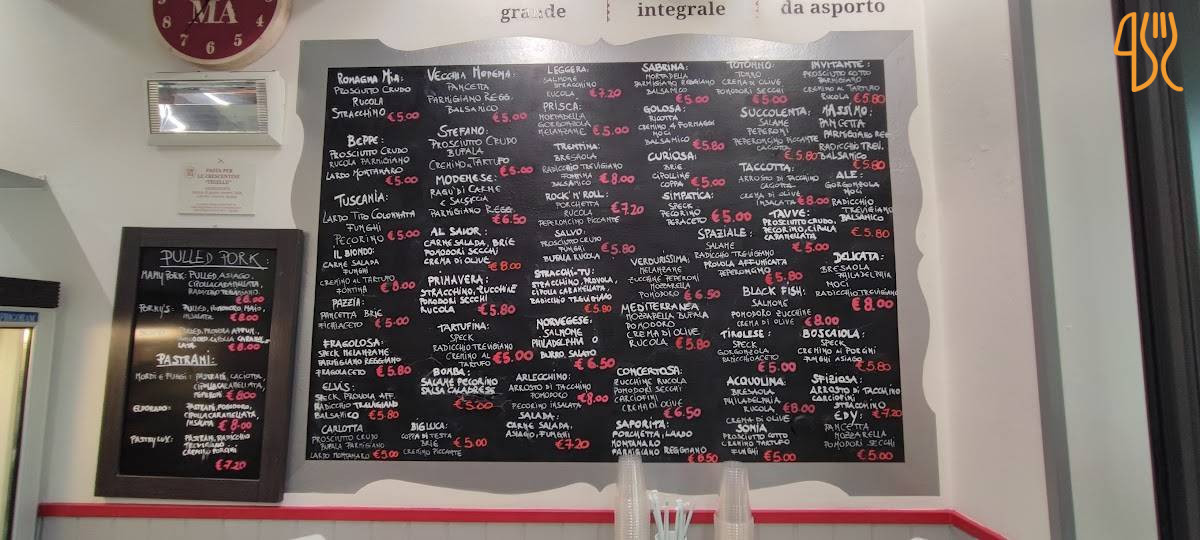 MA
8
7
6
5
4
grande
integrale
da asporto
PASTA PER
LE CRESCENTINE
"TIGELLE"
PULLED PORK:
MAMY PORK: PULLED, ASIAGO,
CIPOLLA CARAMELLATA,
RADICCHIO TREVIGIANO
€8.00
PORKY'S: PULLED, POMODORO, MAIO,
INSALATA
€8.00
PULLED, PROVOLA AFFUM.,
POMODORO, CIPOLLA CARAMEL-
LATA
€8.00
PASTRAMI:
MORDI E FUGGI: PASTRAMI, CACIOTTA,
CIPOLLA CARAMELLATA,
PEPERONI €8.00
ELDORADO: PASTRAMI, POMODORO,
CIPOLLA CARAMELLATA,
INSALATA €8.00
PASTRY LUX: PASTRAMI, RADICCHIO
TREVIGIANO
CREMINO PORCINI
€7.20
ROMAGNA MIA:
PROSCIUTO CRUDO
RUCOLA
STRACCHINO €5.00
BEPPE:
PROSCIUTTO CRUDO
RUCOLA PARMIGIANO
LARDO MONTANARO
€5.00
TUSCANIA:
LARDO TIPO COLONNATA
FUNGHI
PECORINO €5.00
IL BIONDO:
CARNE SALADA
FUNGHI
CREMINO AL TARTUFO
FONTINA €8.00
PAZZIA:
PANCETTA BRIE
PICHIACETO €5.00
FRAGOLOSA:
SPECK MELANZANE
PARMIGIANO REGGIANO
FRAGOLACETO €5.80
ELVIS:
SPECK PROVOLA AFF.
RADICCHIO TREVIGIANO
BALSAMICO €5.80
CARLOTTA
PROSCIUTTO CRUDO
BUFALA PARMIGIANO
LARDO MONTANARO €5.00
VECCHIA MODENA:
PANCETTA
PARMIGIANO REGG.
BALSAMICO
€5.00
STEFANO:
PROSCIUTTO CRUDO
BUFALA
CREMINO TARTUFO
€5.00
MODENESE:
RAGU' DI CARNE
E SALSICCIA
PARMIGIANO REGG.
€6.50
AL SAIOR:
CARNE SALADA, BRIE
POMODORI SECCHI
CREMA DI OLIVE
€8.00
PRIMAVERA:
STRACCHINO, ZUCCHINE
POMODORI SECCHI
RUCOLA €5.80
TARTUFINA:
SPECK
RADICCHIO TREVIGIANO
CREMINO AL
TARTUFO €5.00
BOMBA:
SALAME PECORINO
SALSA CALABRESE
€5.00
BIG LUCA:
COPPA DI TESTA
BRIE €5.00
CREMINO PICCANTE
LEGGERA:
SALMONE
STRACCHINO
RUCOLA €7.20
PRISCA:
MORTADELLA
GORGONZOLA
MELANZANE €5.00
TRENTINA:
BRESAOLA
RADICCHIO TREVIGIANO
FONTINA
BALSAMICO €8.00
ROCK'N'ROLL:
PORCHETTA
RUCOLA €7.20
PEPERONCINO PICCANTE
SALVO:
PROSCIUTTO CRUDO
FUNGHI €5.80
BUFALA RUCOLA
STRACCHI-TU:
STRACCHINO, PROVOLA,
CIPOLLA CARAMELLATA,
RADICCHIO TREVIGIANO
€5.80
NORVEGESE:
SALMONE
PHILADELPHIA O
BURRO SALATO
€6.50
ARLECCHINO:
ARROSTO DI TACCHINO
POMODORO €8.00
PECORINO INSALATA
SALADA:
CARNE SALADA,
ASIAGO, FUNGHI
€7.20
SABRINA:
MORTADELLA
PARMIGIANO REGGIANO
BALSAMICO
€5.00
GOLOSA:
RICOTTA
CREMINO 4 FORMAGGI
NOCI
BALSAMICO €5.80
CURIOSA:
BRIE
CIPOLLINE
COPPA €5.00
SIMPATICA:
SPECK
PECORINO
PERACETO €5.00
SPAZIALE:
SALAME
RADICCHIO TREVIGIANO
PROVOLA AFFUMICATA
PEPERONCINO €5.80
VERDURISSIMA:
MELANZANE
ZUCCHINE PEPERONI
MOZZARELLA
POMODORO €6.50
MEDITERRANEA
MOZZARELLA BUFALA
POMODORO
CREMA DI OLIVE
RUCOLA €5.80
CONCERTOSA:
ZUCCHINE RUCOLA
POMODORI SECCHI
CARCIOFINI
CREMA DI OLIVE
€6.50
SAPORITA:
PORCHETTA, LARDO
MONTANARO
PARMIGIANO REGGIANO
€6.50
TOTONNO:
TONNO
CREMA DI OLIVE
POMODORI SECCHI
€5.00
SUCCULENTA:
SALAME
PEPERONI
PEPERONCINO PICCANTE
CACIOTTA
€5.80
TACCOTTA:
ARROSTO DI TACCHINO
CACIOTTA
CREMA DI OLIVE
INSALATA €8.00
TAVVE:
PROSCIUTTO CRUDO,
PECORINO, CIPOLLA
CARAMELLATA
€5.00
BLACK FISH:
SALMONE
POMODORO ZUCCHINE
CREMA DI OLIVE
€8.00
TIROLESE:
SPECK
GORGONZOLA
RADICCHIOACETO
€5.00
ACQUOLINA:
BRESAOLA
PHILADELPHIA
RUCOLA €8.00
CREMA DI OLIVE
SONIA
PROSCIUTTO COTTO
CREMINO TARTUFO
FUNGHI €5.00
INVITANTE:
PROSCIUTTO COTTO
PARMIGIANO
CREMINO AL TARTUFO
RUCOLA €5.80
MASSIMO:
PANCETTA
PARMIGIANO REGG
RADICCHIO TREVI.
BALSAMICO
€5.80
ALE:
GORGONZOLA
NOCI
RADICCHIO
TREVIGIANO
BALSAMICO
€5.80
DELICATA:
BRESAOLA
PHILADELPHIA
NOCI
RADICCHIO TREVIGIANO
€8.00
BOSCAIOLA:
SPECK
CREMINO AI PORCINI
FUNGHI ASIAGO
€5.80
SFIZIOSA:
ARROSTO DI TACCHINO
CARCIOFINI
STRACCHINO
€7.20
EDY:
PANCETTA
MOZZARELLA
POMODORI SECCHI
€5.00